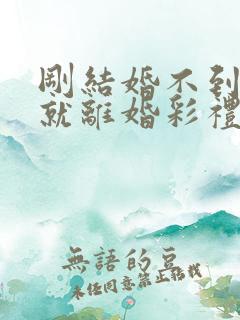 剛結婚不到
就離婚彩禮
無語的豆
未经同意禁止搭载